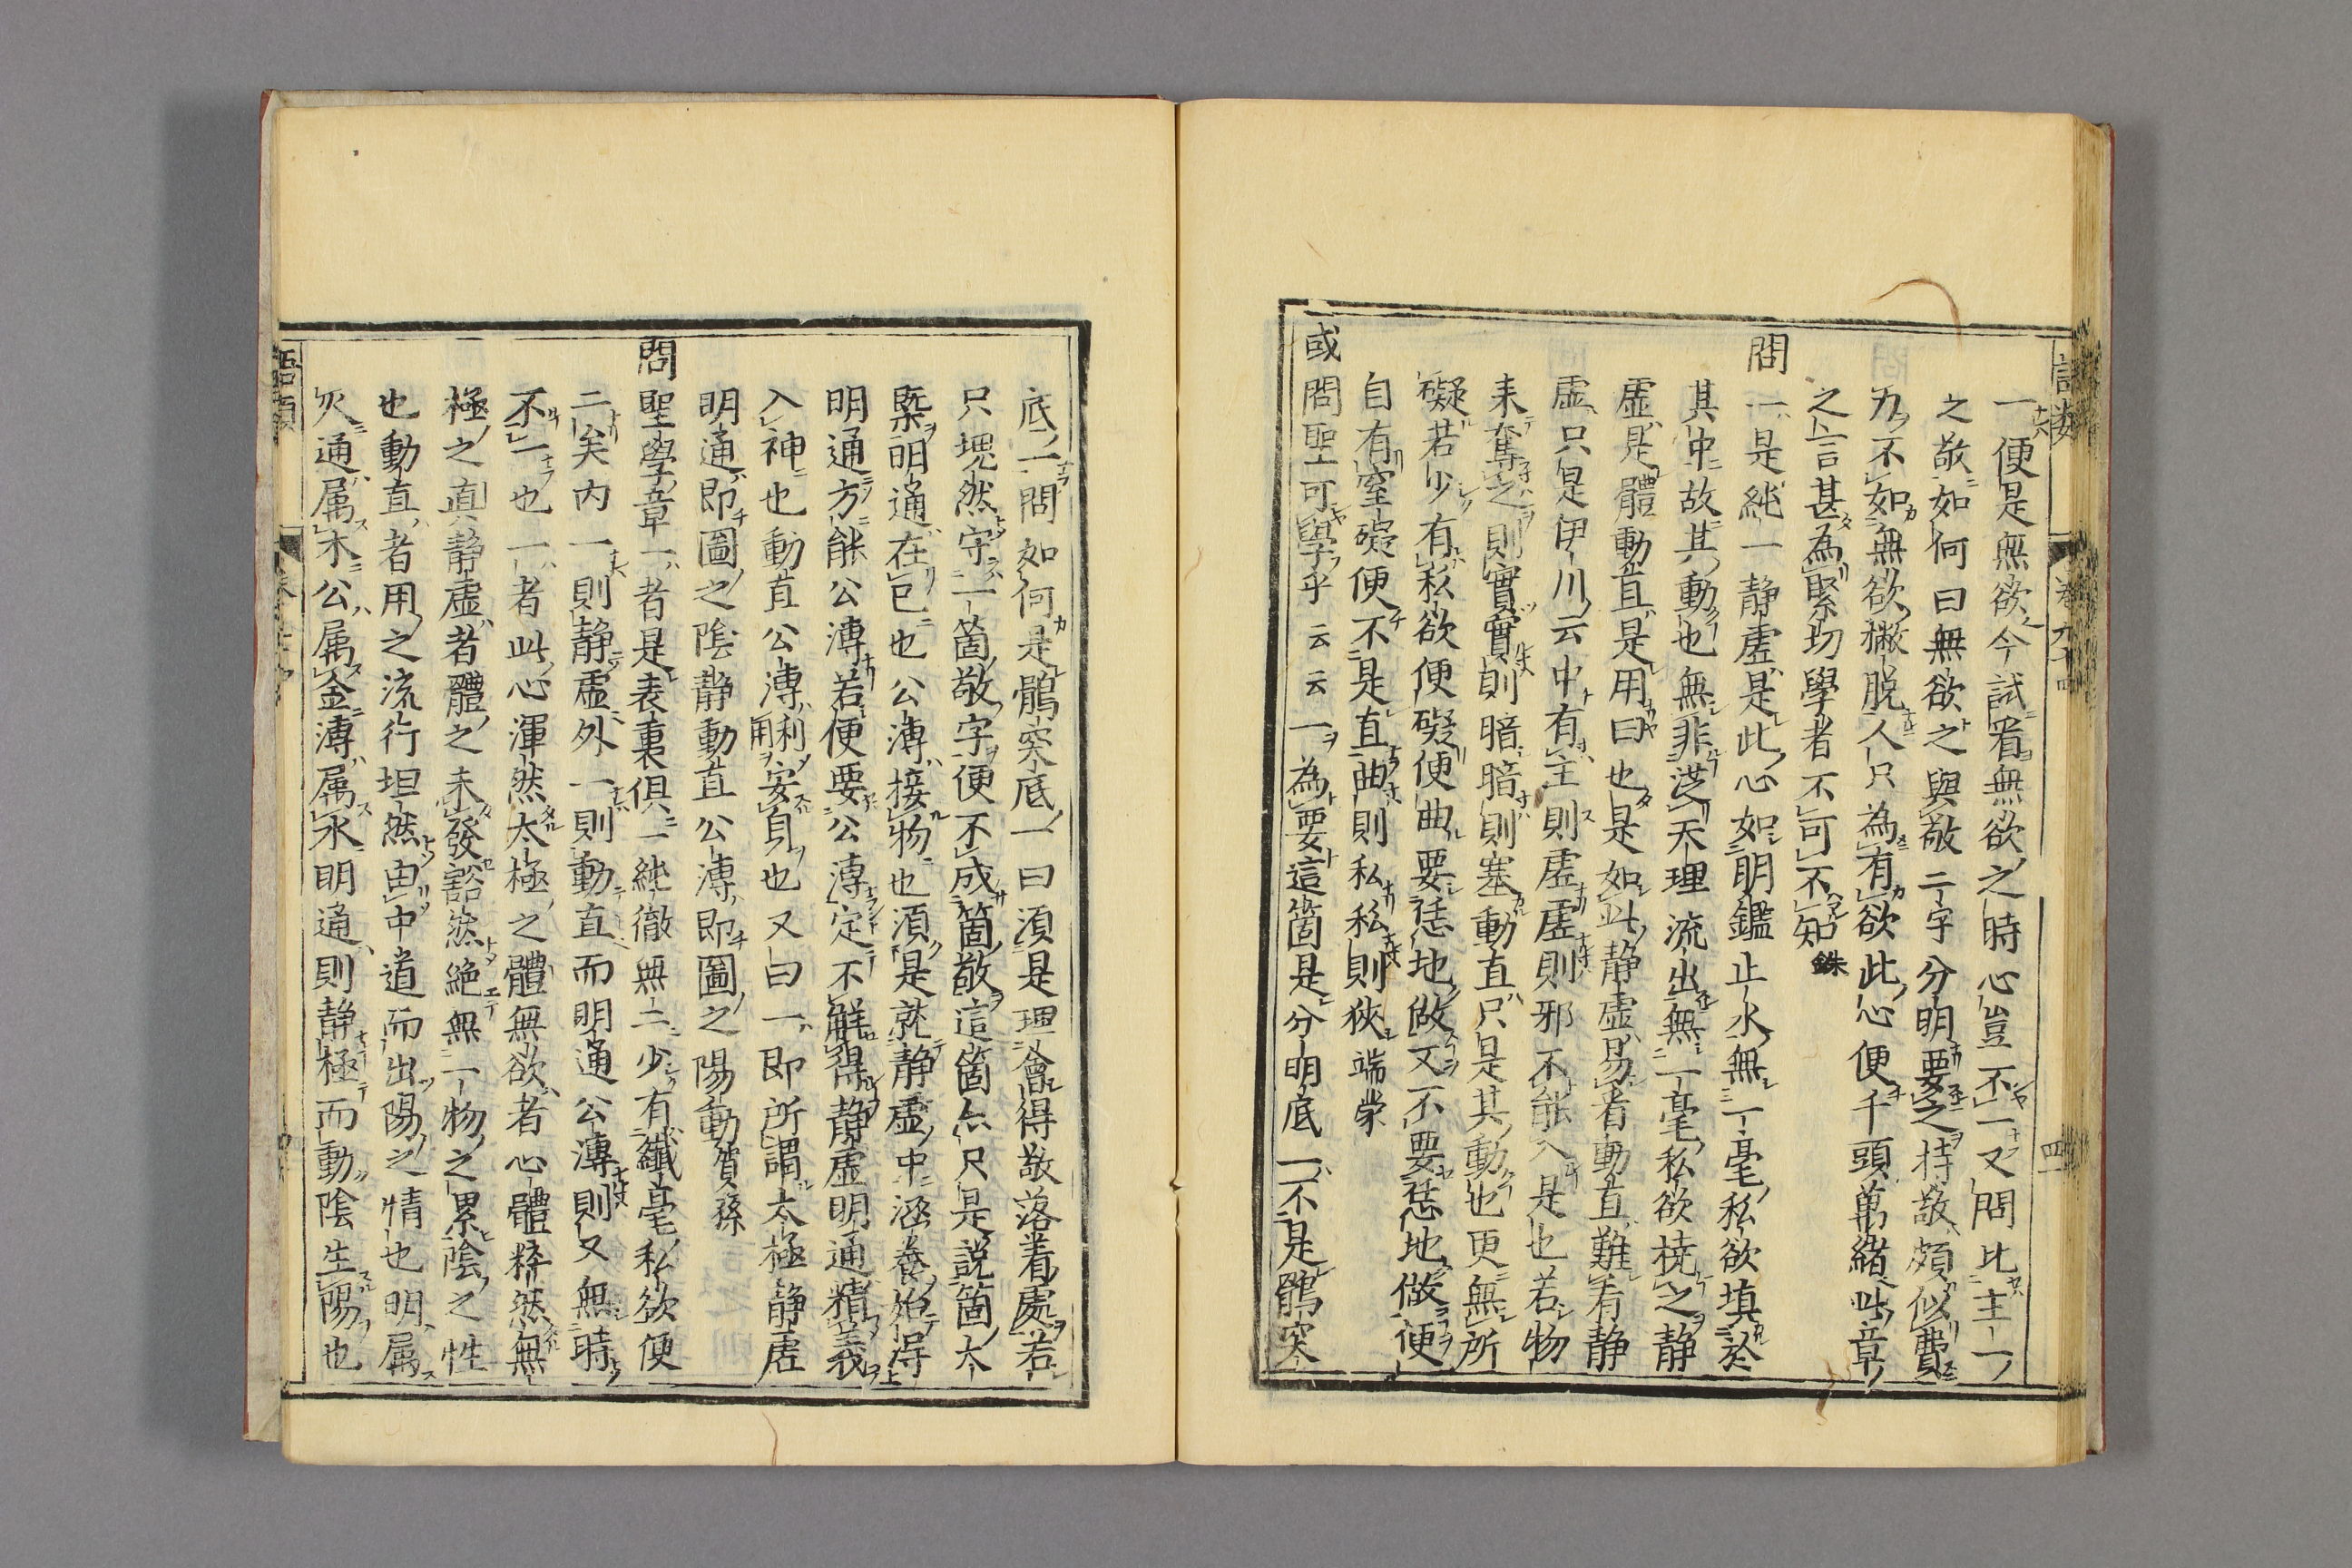 一便是無欲今試看無欲之時心豈不一又問比主一
之敬如何曰無欲之與敬二字分明要之持敬頗似費
力不如無欲撇脱人只為有欲此心便千頭萬緒此章
之言甚為緊切學者不可不知銖
問一是純一静虚是此心如明鑑止水無一毫私欲填於
其中故其動也無非從天理流出無一毫私欲撓之静
虚是體動直是用曰也是如此静虚易看動直難看静
虚只是伊川云中有主則虚虚則邪不能入是也若物
来奪之則實實則暗暗則塞動直只是其動也更無所
礙若少有私欲便礙便曲要恁地做又不要恁地做便
自有窒礙便不是直曲則私私則狹端蒙
或問聖可學乎云云一為要這箇是分明底一不是鶻突
底一問如何是鶻突底一曰須是理會得敬落着處若
只塊然守一箇敬字便不成箇敬這箇亦只是説箇大
槩明通在己也公溥接物也須是就静虚中涵養始得
明通方能公溥若便要公溥定不解得静虚明通精義
入神也動直公溥利用安身也又曰一即所謂太極静虚
明通即圖之陰静動直公溥即圖之陽動賀孫
問聖學章一者是表裏俱一純徹無二少有纖毫私欲便
二矣内一則静虚外一則動直而明通公溥則又無時
不一也一者此心渾然太極之體無欲者心體粹然無
極之真静虚者體之未發豁然絶無一物之累陰之性
也動直者用之流行坦然由中道而出陽之情也明属
火通属木公属金溥属水明通則静極而動陰生陽也
語類
四